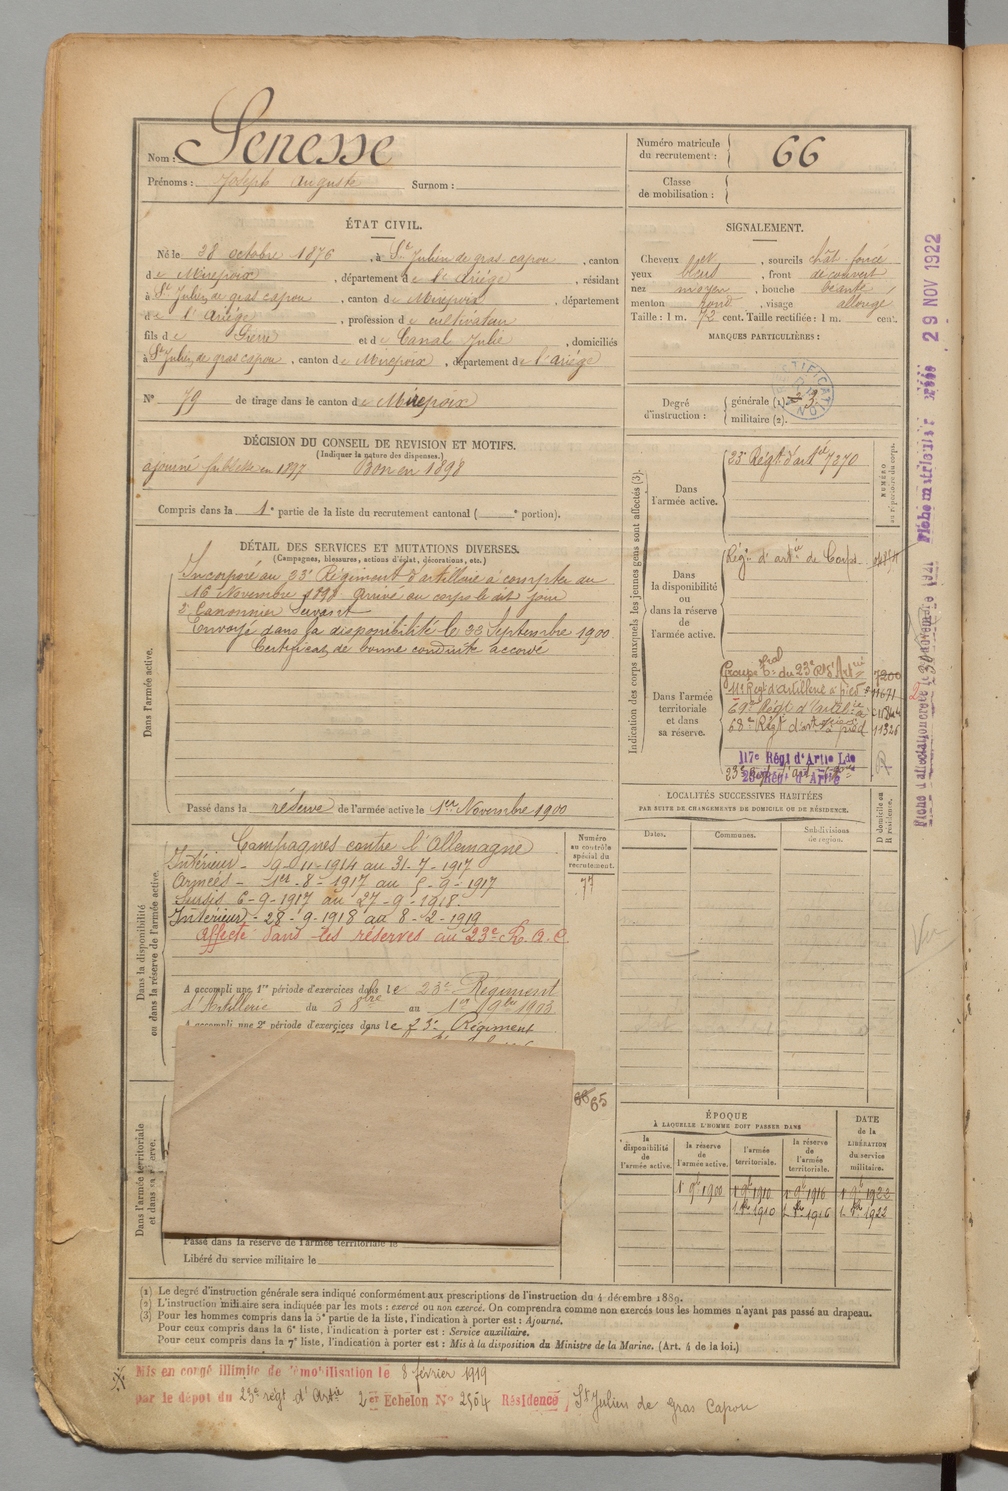 Nom : Senesse
Prénoms : Joseph Auguste Surnom :
Numéro matricule du recrutement : 66
Classe de mobilisation :
ÉTAT CIVIL.
Né le 28 octobre 1876, à St Julien de gras capou, canton
de Mirepoix, département de l'Ariége, résidant
à St Julien de gras capou, canton de Mirepoix, département
de l'Ariége, profession de cultivateur
fils de Pierre et de Canal Julie, domiciliés
à St Julien de gras capou, canton de Mirepoix, département de l'ariége
N° 79 de tirage dans le canton de Mirepoix
SIGNALEMENT.
Cheveux , sourcils chât. foncé
yeux bleus, front découvert
nez moyen, bouche béante
menton rond, visage allongé
Taille : 1 m. 72 cent. Taille rectifiée : 1 m. cent.
MARQUES PARTICULIÈRES :
Degré d'instruction : générale (1). 3
militaire (2).
DÉCISION DU CONSEIL DE REVISION ET MOTIFS.
(Indiquer la nature des dispenses.)
ajourné faiblesse en 1897 Bon en 1898
Compris dans la 1e partie de la liste du recrutement cantonal ( e portion).
DÉTAIL DES SERVICES ET MUTATIONS DIVERSES.
(Campagnes, blessures, actions d'éclat, décorations, etc.)
Dans l'armée active.
Incorporé au 23e Régiment d'artillerie à compter du
16 Novembre 1898 Arrivé au corps le dit jour
2e Canonnier Servant
Envoyé dans la disponibilité le 22 Septembre 1900.
Certificat de bonne conduite accordé
Passé dans la réserve de l'armée active le 1er Novembre 1900
Indication des corps auxquels les jeunes gens sont affectés (3).
NUMÉRO au répertoire du corps.
Dans l'armée active.
23e Régt d'artie 7270
Dans la disponibilité ou dans la réserve de l'armée active.
Régt d'artie de Corps
Dans l'armée territoriale et dans sa réserve.
Groupe tal du 23e Rt d'Artie 7200
11e Régt d'artillerie à pied 11671
68e Régt d'artie à pied 11325
117e Régt d'Artie Lde
23e Régt d'Artie
LOCALITÉS SUCCESSIVES HABITÉES
PAR SUITE DE CHANGEMENTS DE DOMICILE OU DE RÉSIDENCE.
Dates. Communes. Subdivisions de région. D domicile ou R résidence.
Dans la disponibilité ou dans la réserve de l'armée active.
Numéro au contrôle spécial du recrutement.
77
Campagnes contre l'Allemagne
Intérieur - 9-11-1914 au 31-7-1917
Armées - 1er-8-1917 au 5-9-1917
Sursis 6-9-1917 au 27-9-1918
Intérieur - 28-9-1918 au 8-2-1919
Affecté dans les réserves au 23e R.A.C.
A accompli une 1re période d'exercices dans le 23e Régiment
d'Artillerie du 5 8bre au 1er 9bre 1903
A accompli une 2e période d'exercices dans le 23e Régiment
Dans l'armée territoriale et dans sa réserve.
66 65
Passé dans la réserve de l'armée territoriale le
Libéré du service militaire le
ÉPOQUE
À LAQUELLE L'HOMME DOIT PASSER DANS
DATE de la LIBÉRATION du service militaire.
la disponibilité de l'armée active. la réserve de l'armée active. l'armée territoriale. la réserve de l'armée territoriale.
1r 9e 1900 1r 9e 1910 1r 9e 1916 1r 9e 1922
1910 1916 1922
(1) Le degré d'instruction générale sera indiqué conformément aux prescriptions de l'instruction du 4 décembre 1889.
(2) L'instruction militaire sera indiquée par les mots : exercé ou non exercé. On comprendra comme non exercés tous les hommes n'ayant pas passé au drapeau.
(3) Pour les hommes compris dans la 5e partie de la liste, l'indication à porter est : Ajourné.
Pour ceux compris dans la 6e liste, l'indication à porter est : Service auxiliaire.
Pour ceux compris dans la 7e liste, l'indication à porter est : Mis à la disposition du Ministre de la Marine. (Art. 4 de la loi.)
Mis en congé illimité de démobilisation le 8 février 1919
par le dépôt du 23e régt d'Artie 2er Echelon N° 2504 Résidence St Julien de Gras Capou
29 NOV 1922
Vu